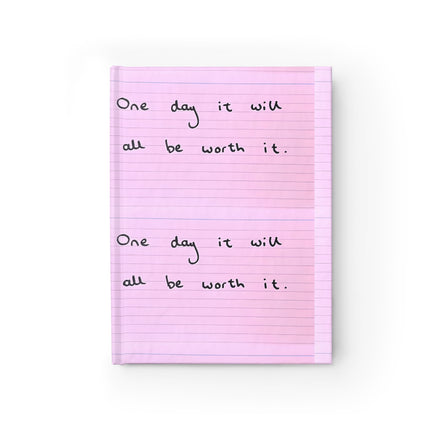 One day it will
all be worth it.
One day it will
all be worth it.